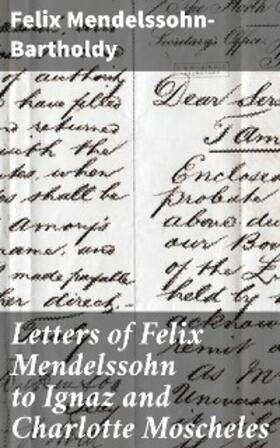 Felix Mendelssohn-
Bartholdy
Secretary's Office
of authority
Dear
I have filed
and returned
I am
with the
when
Enclosed
shall be
probate
Amory's
above
name, and
our
of the
made payable
held by
her direct-
Letters of Felix
Mendelssohn
to Ignaz and
Charlotte Moscheles
remit
as